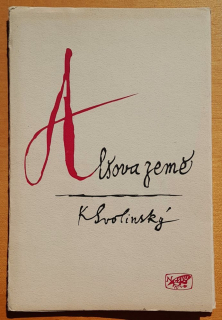 Alšova země
K Svolinský